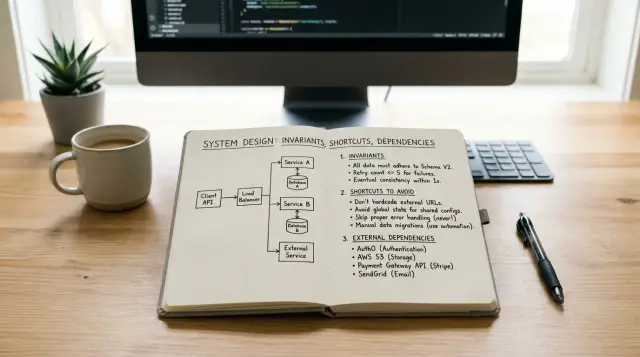 SYSTEM DESIGN: INVARIANTS, SHORTCUTS, DEPENDENCIES
Client
API
Load
Balancer
Service A
Database
A
Service B
Database
B
External
Service
1. INVARIANTS
• All data must adhere to Schema V2.
• Retry count <= 5 for failures.
• Eventual consistency within 1s.
2. SHORTCUTS TO AVOID
• Don't hardcode external URLs.
• Avoid global state for shared configs.
• Skip proper error handling (never!).
• Manual data migrations (use automation).
3. EXTERNAL DEPENDENCIES
• Auth0 (Authentication)
• AWS S3 (Storage)
• Payment Gateway API (Stripe)
• SendGrid (Email)